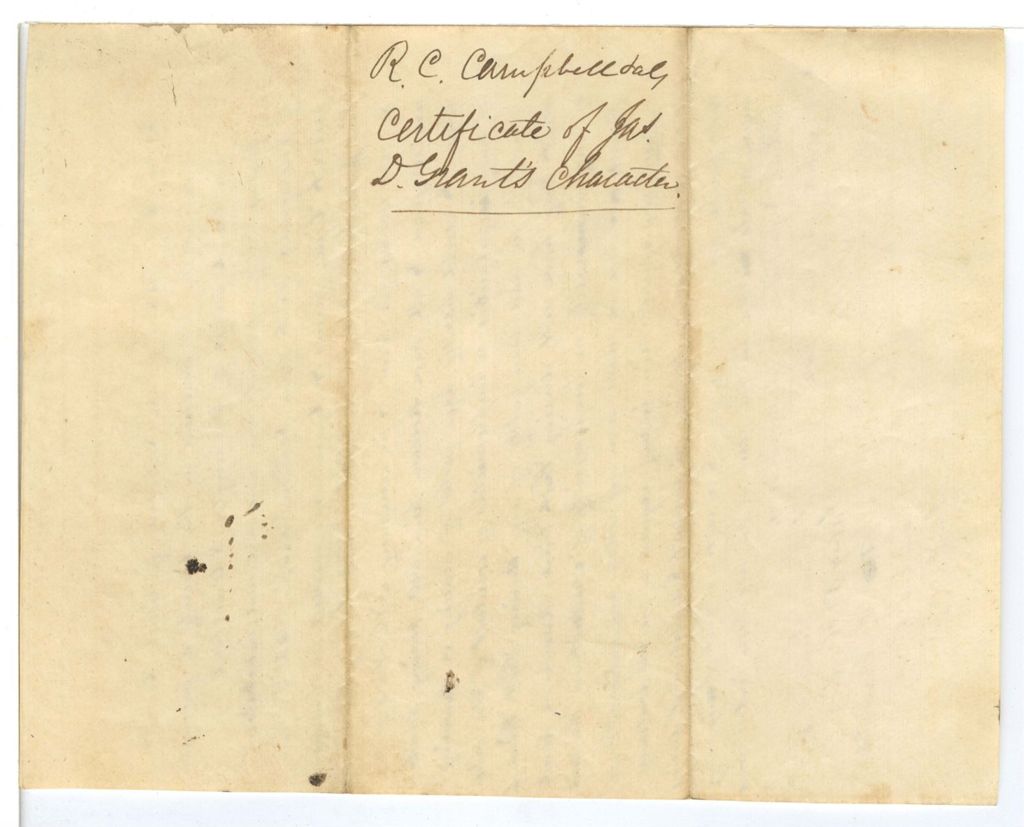 R. C. Campbell & als
Certificate of Jas.
D. Grant's Character.